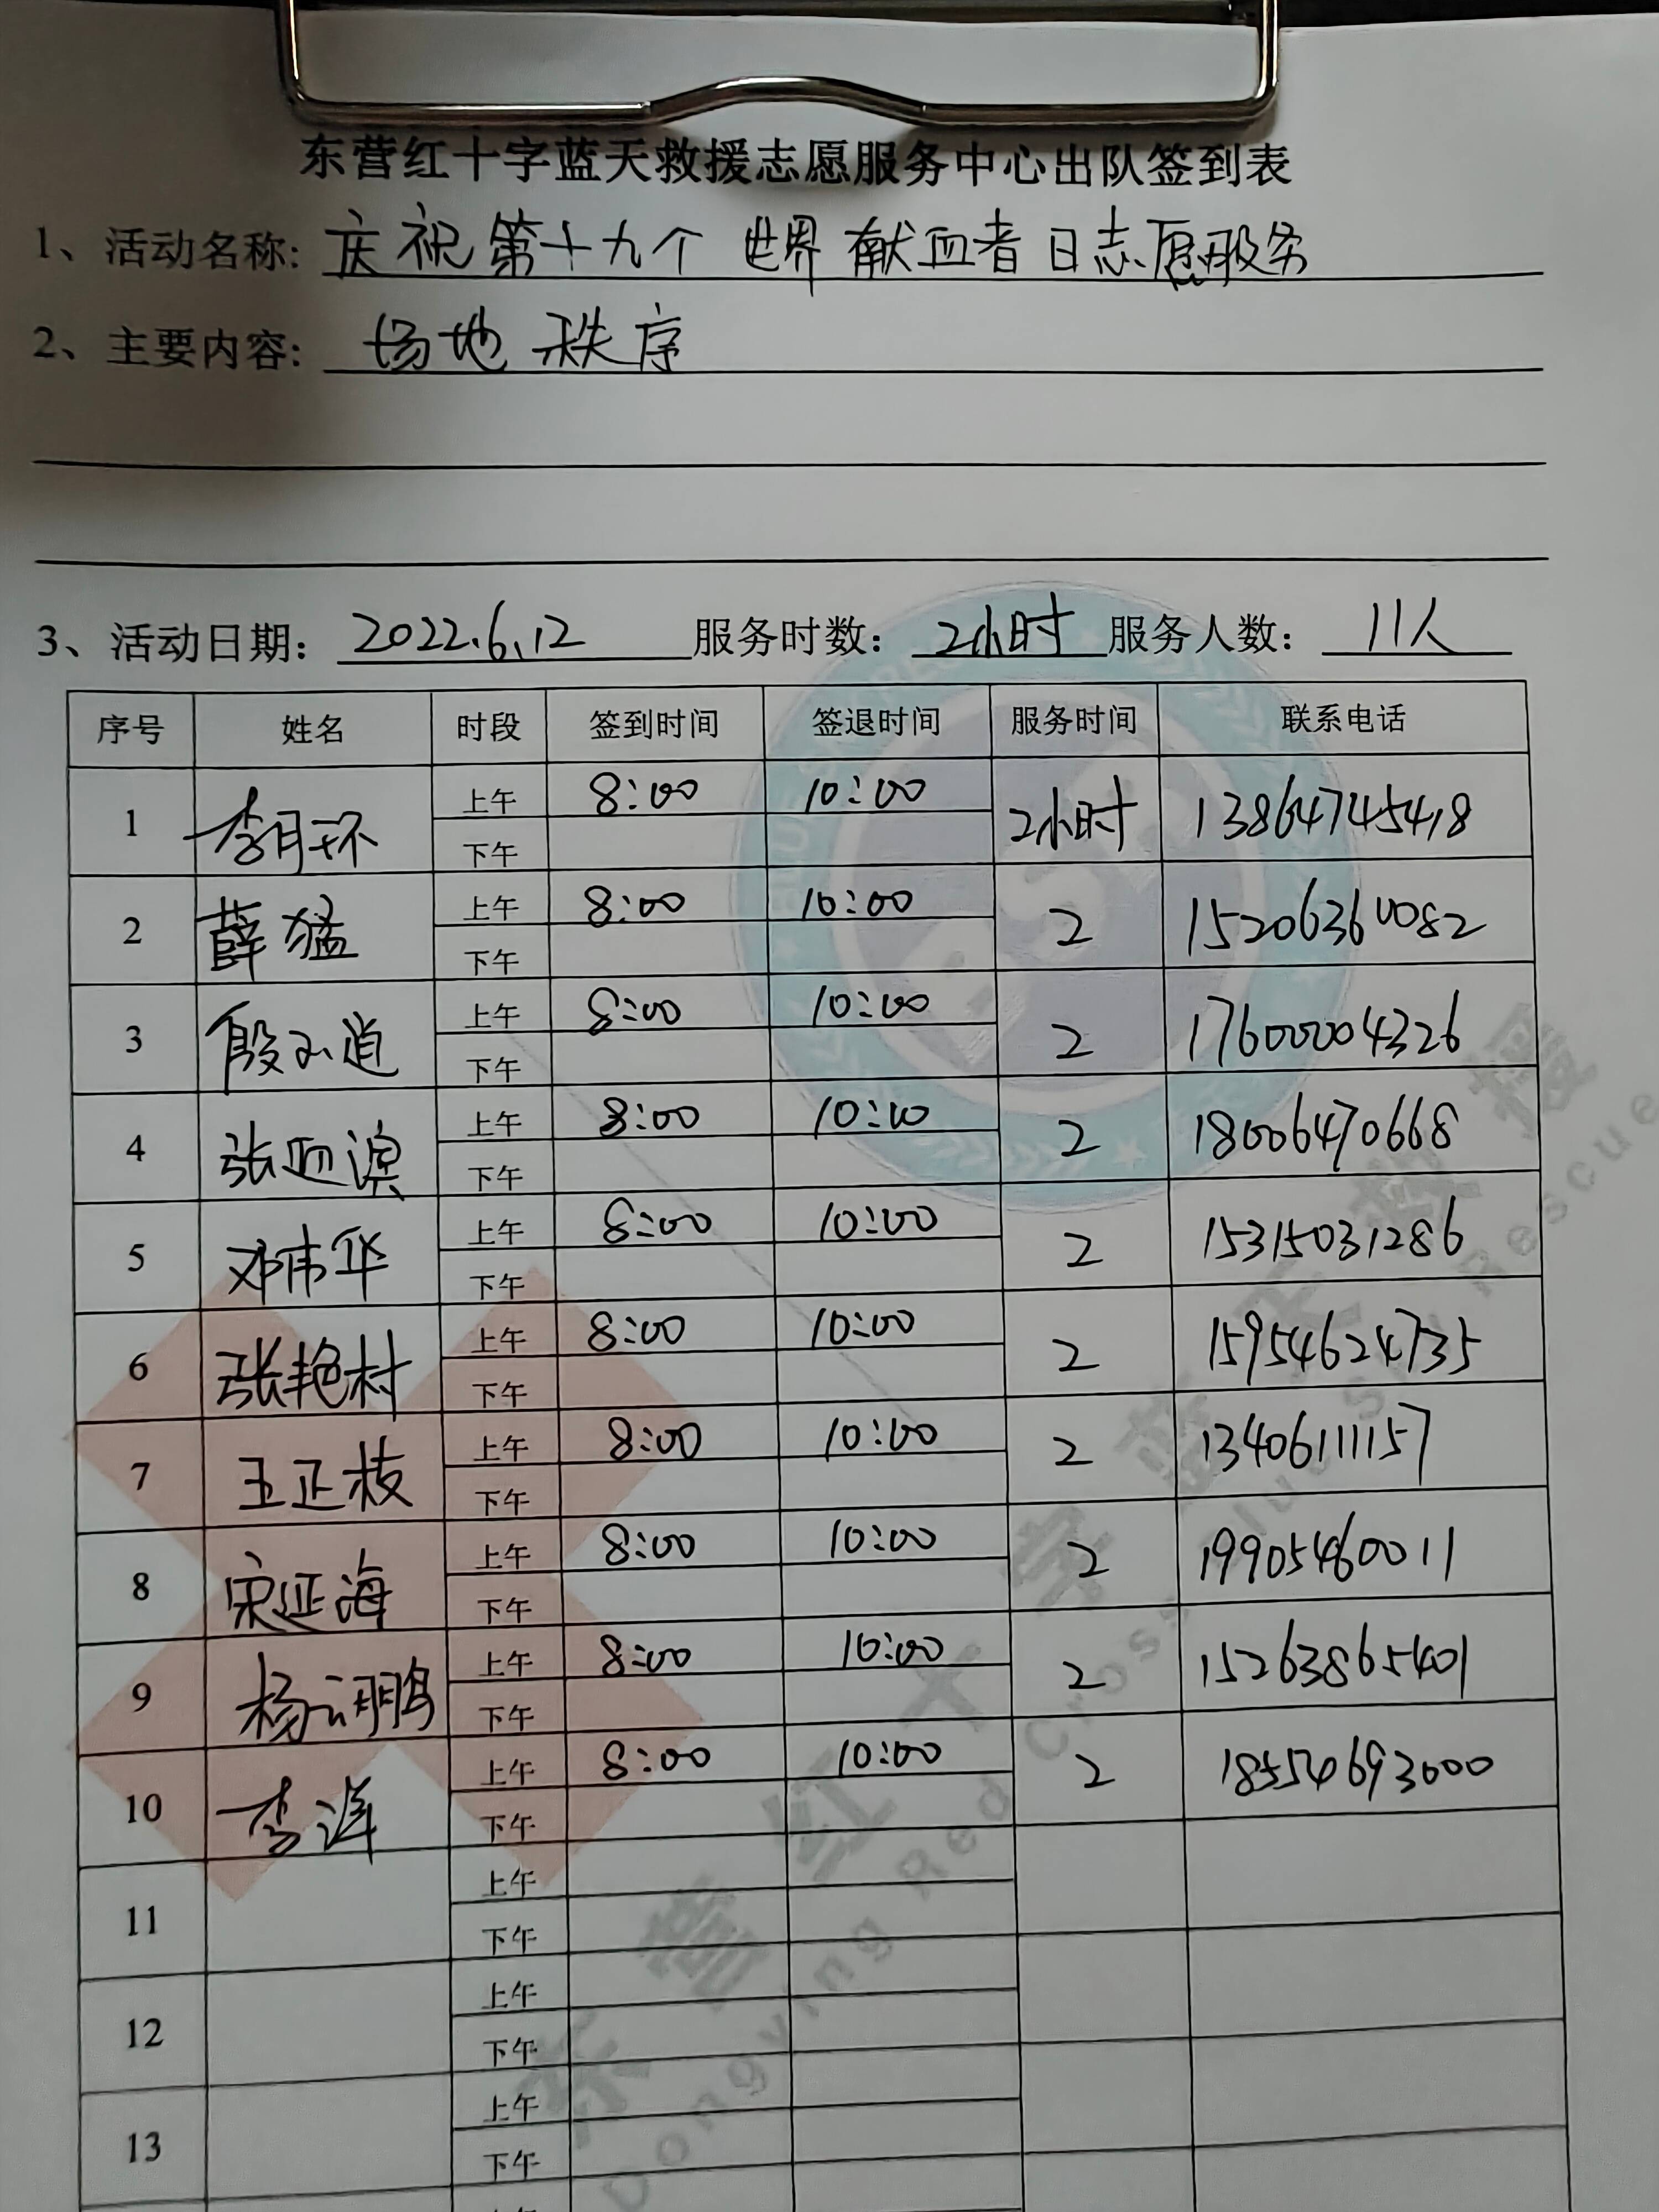 东营红十字蓝天救援志愿服务中心出队签到表
1、活动名称: 庆祝第十九个世界献血者日志愿服务
2、主要内容: 场地秩序
3、活动日期: 2022.6.12 服务时数: 2小时 服务人数: 11人
序号 姓名 时段 签到时间 签退时间 服务时间 联系电话
1 李月环 上午 8:00 10:00 2小时 13864745418
下午
2 薛猛 上午 8:00 10:00 2 15206360082
下午
3 殷小道 上午 8:00 10:00 2 17600004326
下午
4 张 滨 上午 8:00 10:00 2 18006470668
下午
5 邓伟华 上午 8:00 10:00 2 15315031286
下午
6 张艳村 上午 8:00 10:00 2 15954624735
下午
7 王正枝 上午 8:00 10:00 2 13406111157
下午
8 宋延海 上午 8:00 10:00 2 19905460011
下午
9 杨 鹏 上午 8:00 10:00 2 15263865401
下午
10 李洋 上午 8:00 10:00 2 18554693000
下午
11 上午
下午
12 上午
下午
13 上午
下午
东营红十字蓝天救援搜
Dongying Red Cross Blue Sky Rescue